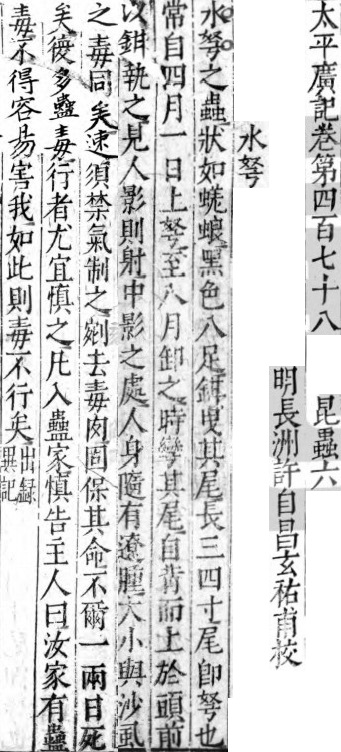 太平廣記卷第四百七十八　昆蟲六
明長洲許自昌玄祐甫校
水弩
水弩之蟲狀如蜣蜋黑色八足鉗曳其尾長三四寸尾卽弩也
常自四月一日上弩至八月卸之時彎其尾自背而上於頭前
以鉗執之見人影則射中影之處人身隨有遼腫大小與沙虱
之毒同矣速須禁氣制之剜去毒肉固保其命不爾一兩日死
矣復多蠱毒行者尤宜慎之凡入蠱家慎告主人曰汝家有蠱
毒不得容易害我如此則毒不行矣出録
異記